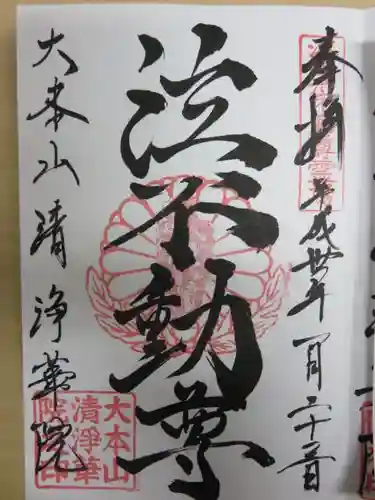 奉拝 平成卅年一月二十二日
泣不動尊
大本山清浄華院
大本山
清淨華
院之印